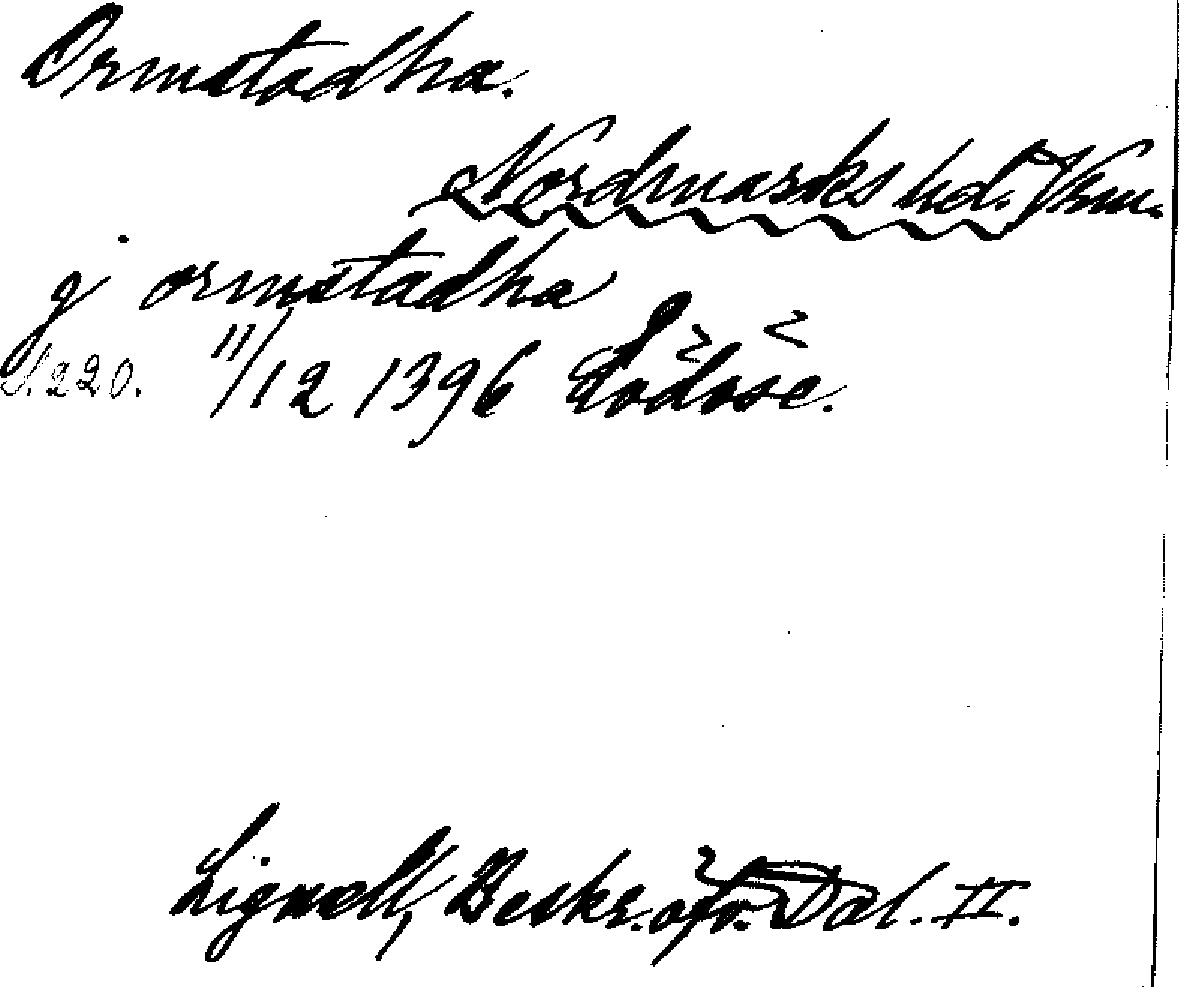 Ormstadha.
Nordmarks hd. Vrm.
j ormstadha
S. 220. 11/12 1396 Lödöse.
Lignell, Beskr. öfv. Dal. II.